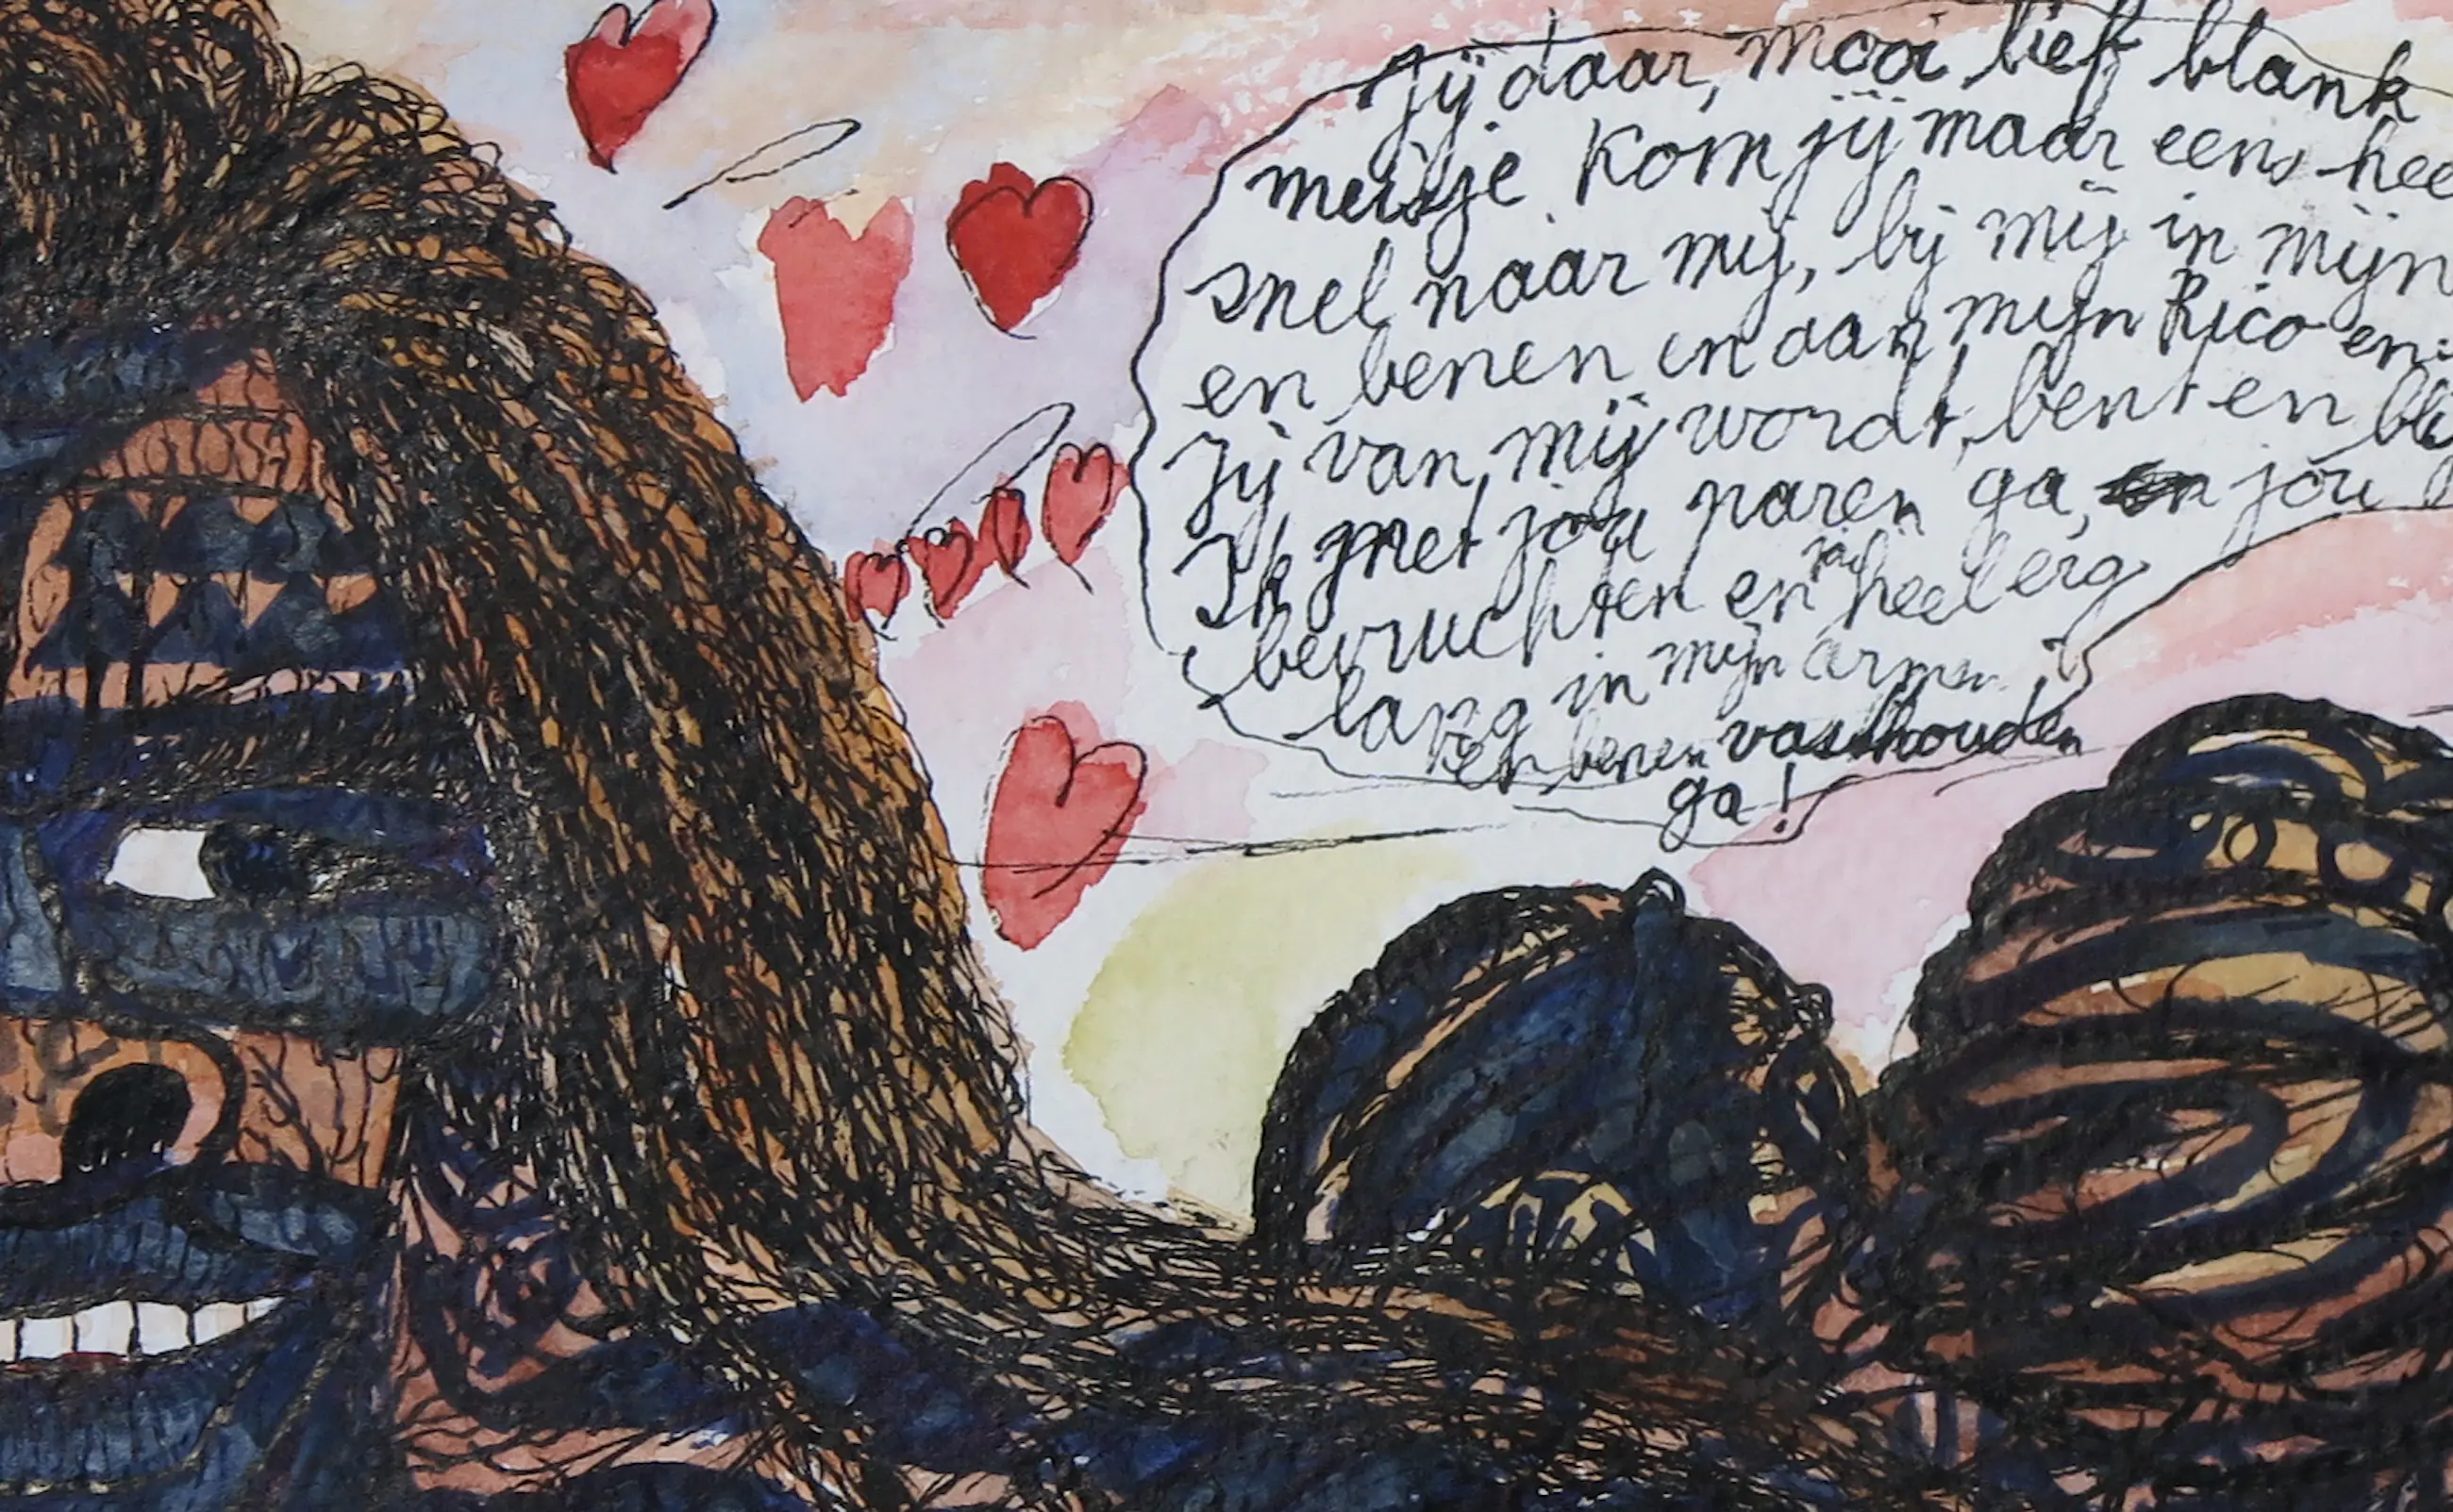 Jij daar, mooi lief blank
meisje kom jij maar eens hee
snel naar mij, bij mij in mijn
en benen en aan mijn Rico en
Jij van mij wordt, bent en bli
Ik met jou paren ga, en jou
bevruchten en jou heel erg
lang in mijn armen
en benen vasthouden
ga!